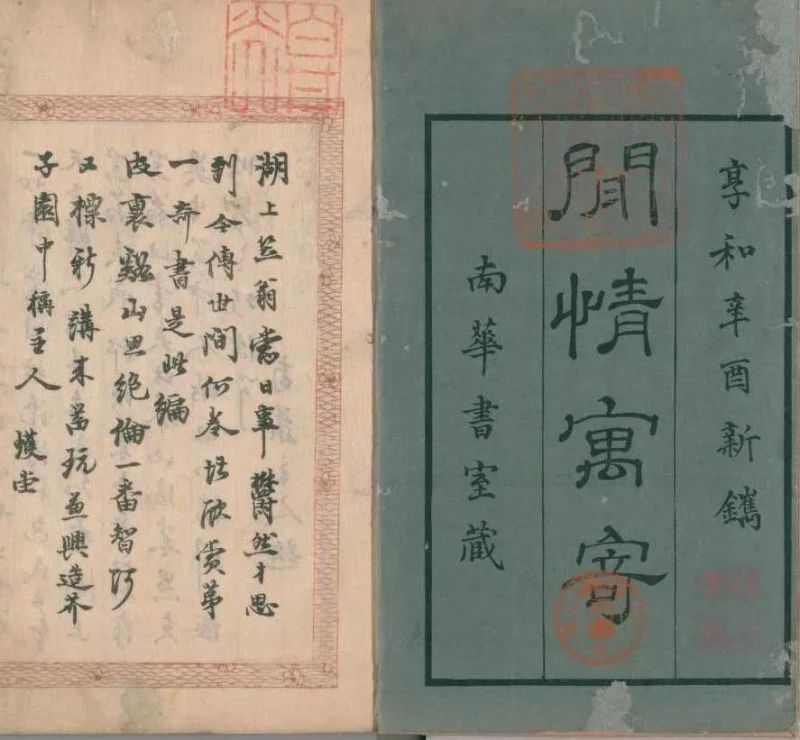 享和辛酉新鐫
閒情寓寄
南華書室藏
湖上笠翁當日事欝然才思
到今傳世間何卷堪欣賞第
一奇書是此編
皮裏谿山思絕倫一番智巧
又標新講求器玩並興造芥
子園中稱主人